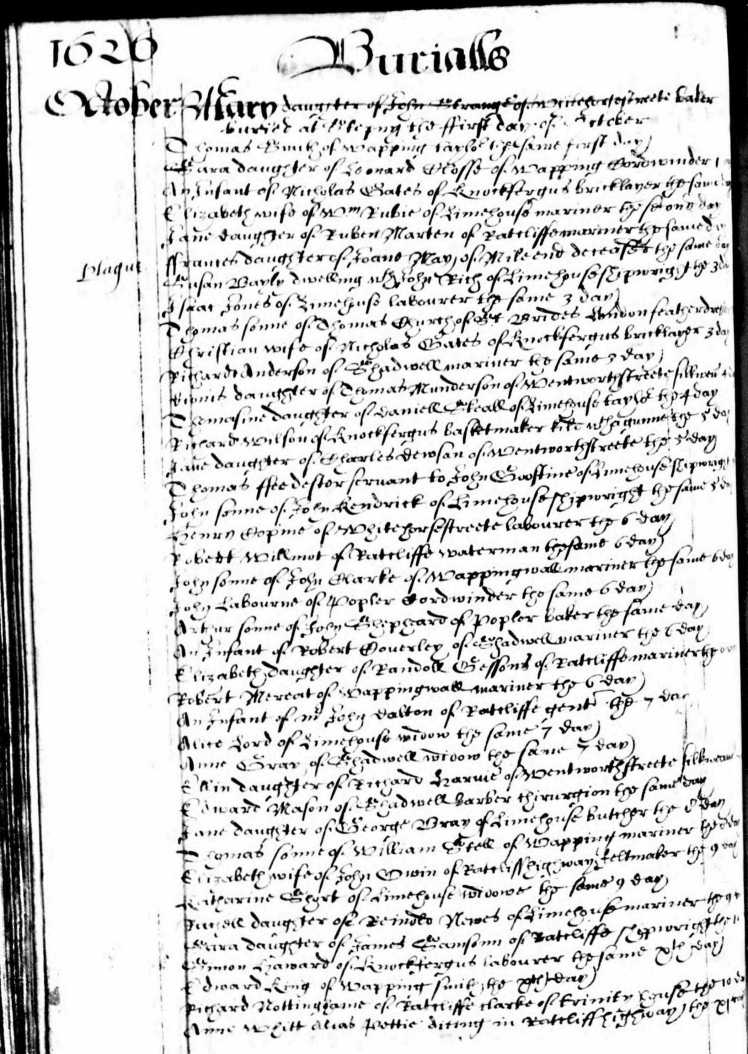 1626 Burialls
October Mary daughter of John Strange of Whitehorsstreete baker
buried at Stepny the ffirst day of October
Thomas Smith of Wapping taylor the same first day
Sara daughter of Leonard Closse of Wapping Cordwinder 1
An Infant of Nicholas Gates of Knockfergus bricklayer the same day
Elizabeth wife of Wm Rubie of Limehouse mariner the second day
Jane daughter of Ruben Marten of Ratcliffe mariner the same day
ffrances daughter of Joane May of Mile end deceased the same day
Plague Susan Bayly dwelling wth John Rich of Limehouse shipwright the 3 da
Isaac Jones of Limehouse labourer the same 3 day
Thomas sonne of Thomas Church of St Brides London
Christian wife of Nicholas Gates of Knockfergus bricklayer 3 day
Richard Anderson of Shadwell mariner the same 3 day
daughter of Thomas Munderson of Wentworthstreete silkner 4
Thomasine daughter of Daniell of Limehouse taylor the 4 day
Richard Wilson of Knockfergus basketmaker kild wth a gunne the 5 day
Jane daughter of Charles Dewsan of Wentworthstreete the 5 day
Thomas servant to John of Limehouse shipwright
John sonne of John Kendrick of Limehouse shipwright the same 5 da
Henry Copine of Whitehorsestreete labourer the 6 day
Robert Willmot of Ratcliffe waterman the same 6 day
John sonne of John Clarke of Wappingwall mariner the same 6 day
John Labourne of Popler Cordwinder the same 6 day
Arthur sonne of John Shephard of Popler baker the same day
An Infant of Robert Couerley of Shadwell mariner the 6 day
Elizabeth daughter of Randoll Sessons of Ratcliffe mariner the
Robert Mereat of Wappingwall mariner the 6 day
An Infant of mr John Dalton of Ratcliffe gent the 7 day
Alice Lord of Limehouse widow the same 7 day
Anne Gray of Shadwell widow the same 7 day
Ellin daughter of Richard Harme of Wentworthstreete
Edward Mason of Shadwell barber chirurgion the same day
Jane daughter of George Bray of Limehouse butcher the 8 day
Thomas sonne of William Stell of Wapping mariner the
Elizabeth wife of John Owin of Ratcliffhighway feltmaker the 9 day
Katharine Short of Limehouse widowe the same 9 day
daughter of Reinold Newes of Limehouse mariner the 9
Sara daughter of James Samsonn of Ratcliffe shipwright the
Simon Haward of Knockfergus labourer the same xth day
Edward King of Wapping smith the xth day
Richard Nottinghame of Ratcliffe clarke of trinity house the 10 da
Anne Whitt alias Pettie diting in Ratcliffhighway the